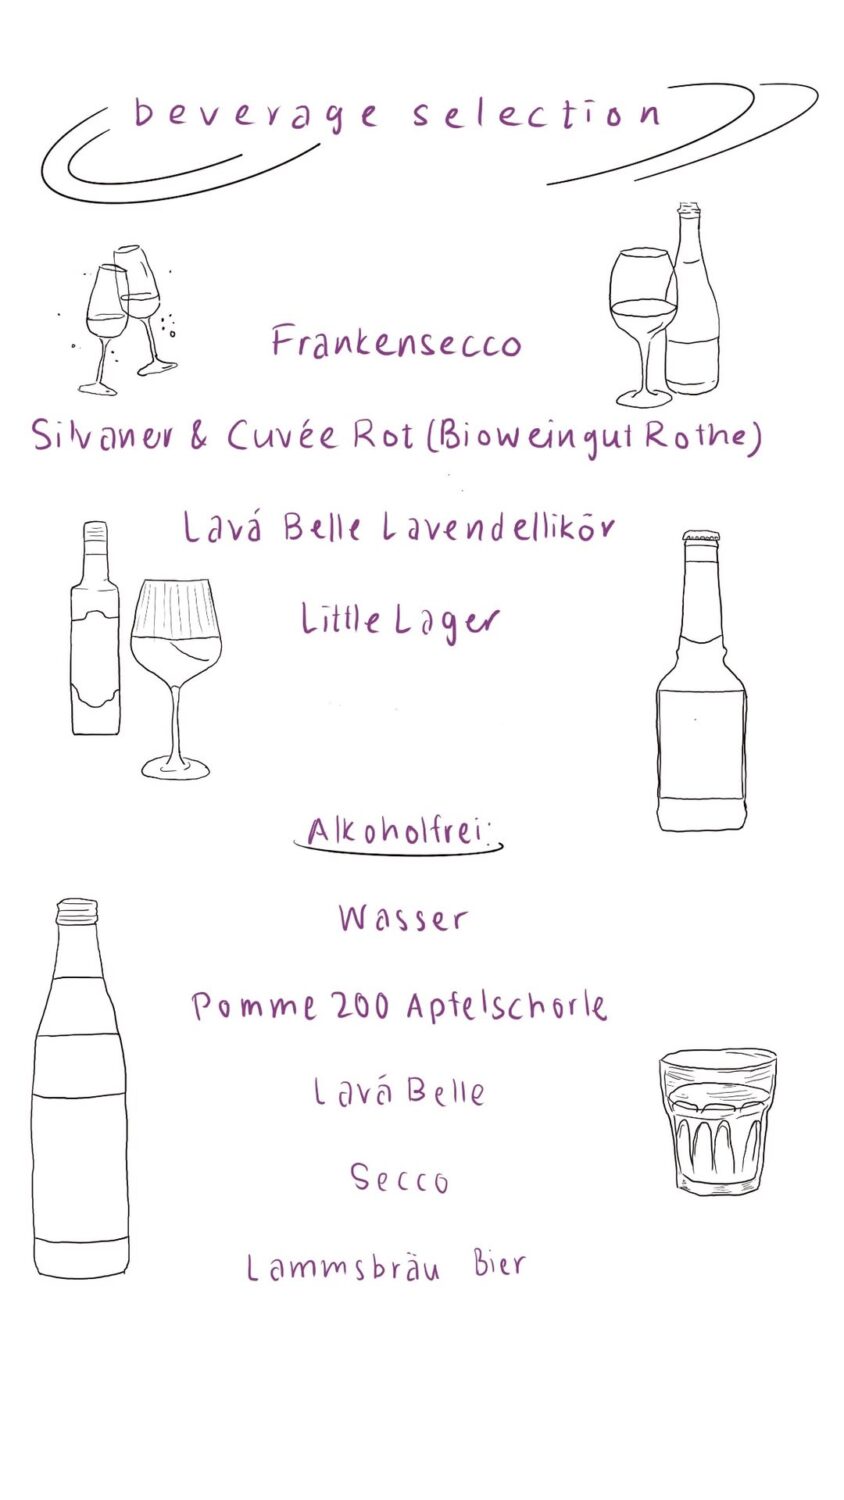 beverage selection
Frankensecco
Silvaner & Cuvée Rot (Bioweingut Rothe)
Lavá Belle Lavendellikör
Little Lager
Alkoholfrei:
Wasser
Pomme 200 Apfelschorle
Lavá Belle
Secco
Lammsbräu Bier